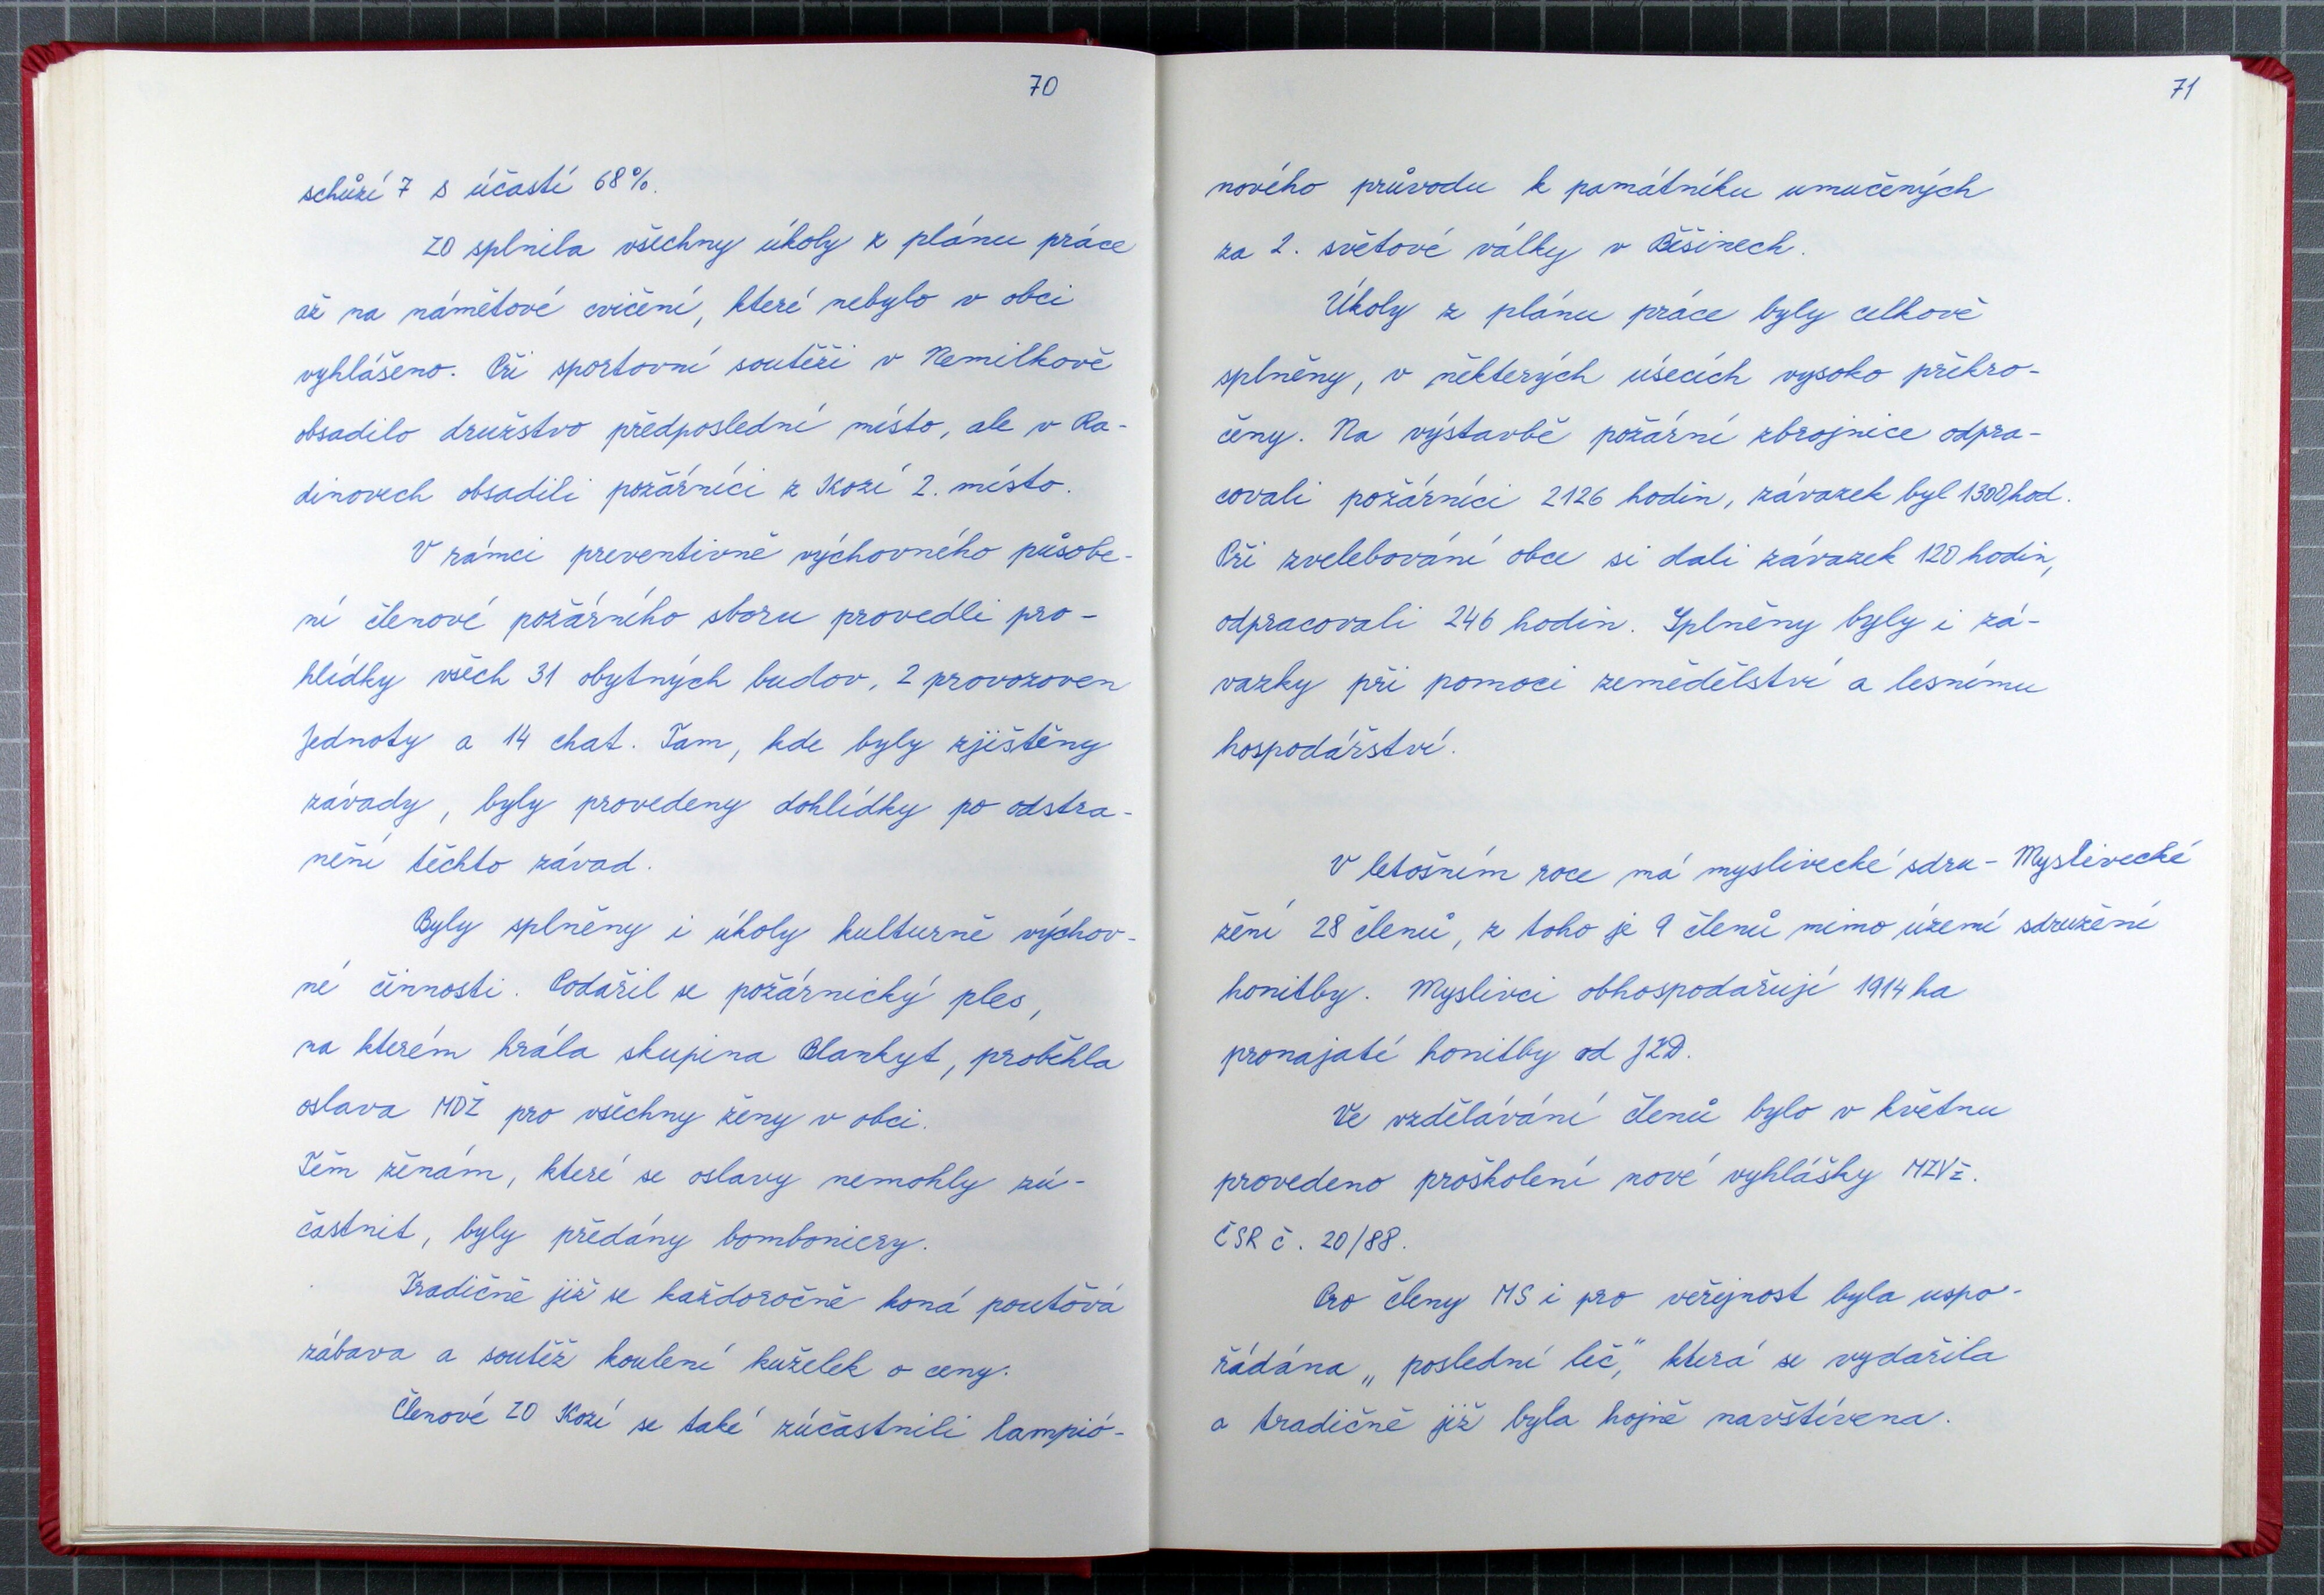 70
schůzí 7 s účastí 68%.
ZO splnila všechny úkoly z plánu práce
až na námětové cvičení, které nebylo v obci
vyhlášeno. Při sportovní soutěži v Nemilkově
obsadilo družstvo předposlední místo, ale v Ra-
dinovech obsadili požárníci z Kozí 2. místo.
V rámci preventivně výchovného působe-
ní členové požárního sboru provedli pro-
hlídky všech 31 obytných budov, 2 provozoven
Jednoty a 14 chat. Tam, kde byly zjištěny
závady, byly provedeny dohlídky po odstra-
nění těchto závad.
Byly splněny i úkoly kulturně výchov-
né činnosti. Podařil se požárnický ples,
na kterém hrála skupina Blankyt, proběhla
oslava MDŽ pro všechny ženy v obci.
Těm ženám, které se oslavy nemohly zú-
častnit, byly předány bomboniery.
Tradičně již se každoročně koná pouťová
zábava a soutěž koulení kuželek o ceny.
Členové ZO Kozí se také zúčastnili lampió-
71
nového průvodu k památníku umučených
za 2. světové války v Běšinech.
Úkoly z plánu práce byly celkově
splněny, v některých úsecích vysoko překro-
čeny. Na výstavbě požární zbrojnice odpra-
covali požárníci 2126 hodin, závazek byl 1300 hod.
Při zvelebování obce si dali závazek 120 hodin,
odpracovali 246 hodin. Splněny byly i zá-
vazky při pomoci zemědělství a lesnímu
hospodářství.
V letošním roce má myslivecké sdru- Myslivecké
žení 28 členů, z toho je 9 členů mimo území sdružení
honitby. Myslivci obhospodařují 1914 ha
pronajaté honitby od JZD.
Ve vzdělávání členů bylo v květnu
provedeno proškolení nové vyhlášky MZVž.
ČSR č. 20/88.
Pro členy MS i pro veřejnost byla uspo-
řádána „poslední leč," která se vydařila
a tradičně již byla hojně navštívena.